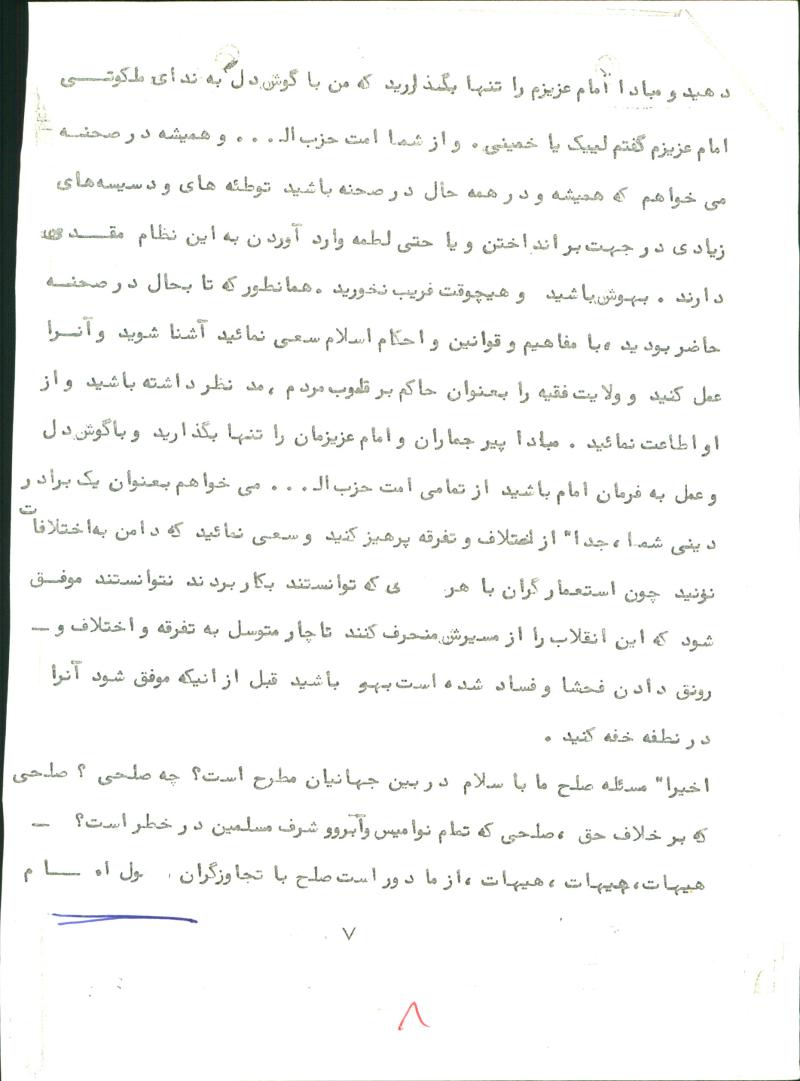 دهید و مبادا امام عزیزم را تنها بگذارید که من با گوش دل به ندای ملکوتی
امام عزیزم گفتم لبیک یا خمینی. و از شما امت حزب الـ... و همیشه در صحنه
می خواهم که همیشه و در همه حال در صحنه باشید توطئه های و دسیسه‌های
زیادی در جهت بر انداختن و یا حتی لطمه وارد آوردن به این نظام مقدس
دارند. بهوش باشید و هیچوقت فریب نخورید. همانطور که تا بحال در صحنه
حاضر بودید، با مفاهیم و قوانین و احکام اسلام سعی نمائید آشنا شوید و آنرا
عمل کنید و ولایت فقیه را بعنوان حاکم بر قلوب مردم، مد نظر داشته باشید و از
او اطاعت نمائید. مبادا پیر جماران و امام عزیزمان را تنها بگذارید و باگوش دل
و عمل به فرمان امام باشید از تمامی امت حزب الـ... می خواهم بعنوان یک برادر
دینی شما، جدا" از اختلاف و تفرقه پرهیز کنید و سعی نمائید که دامن به اختلافات
نزنید چون استعمار گران با هر ی که توانستند بکار بردند نتوانستند موفق
شود که این انقلاب را از مسیرش منحرف کنند ناچار متوسل به تفرقه و اختلاف و ـ
رونق دادن فحشا و فساد شده است بهو باشید قبل از انیکه موفق شود آنرا
در نطفه خفه کنید.
اخیرا" مسئله صلح ما با سلام در بین جهانیان مطرح است؟ چه صلحی؟ صلحی
که بر خلاف حق، صلحی که تمام نوامیس وآبروو شرف مسلمین در خطر است؟ ـ
هیهات، هیهات، هیهات، از ما دور است صلح با تجاوزگران.
۷
۸